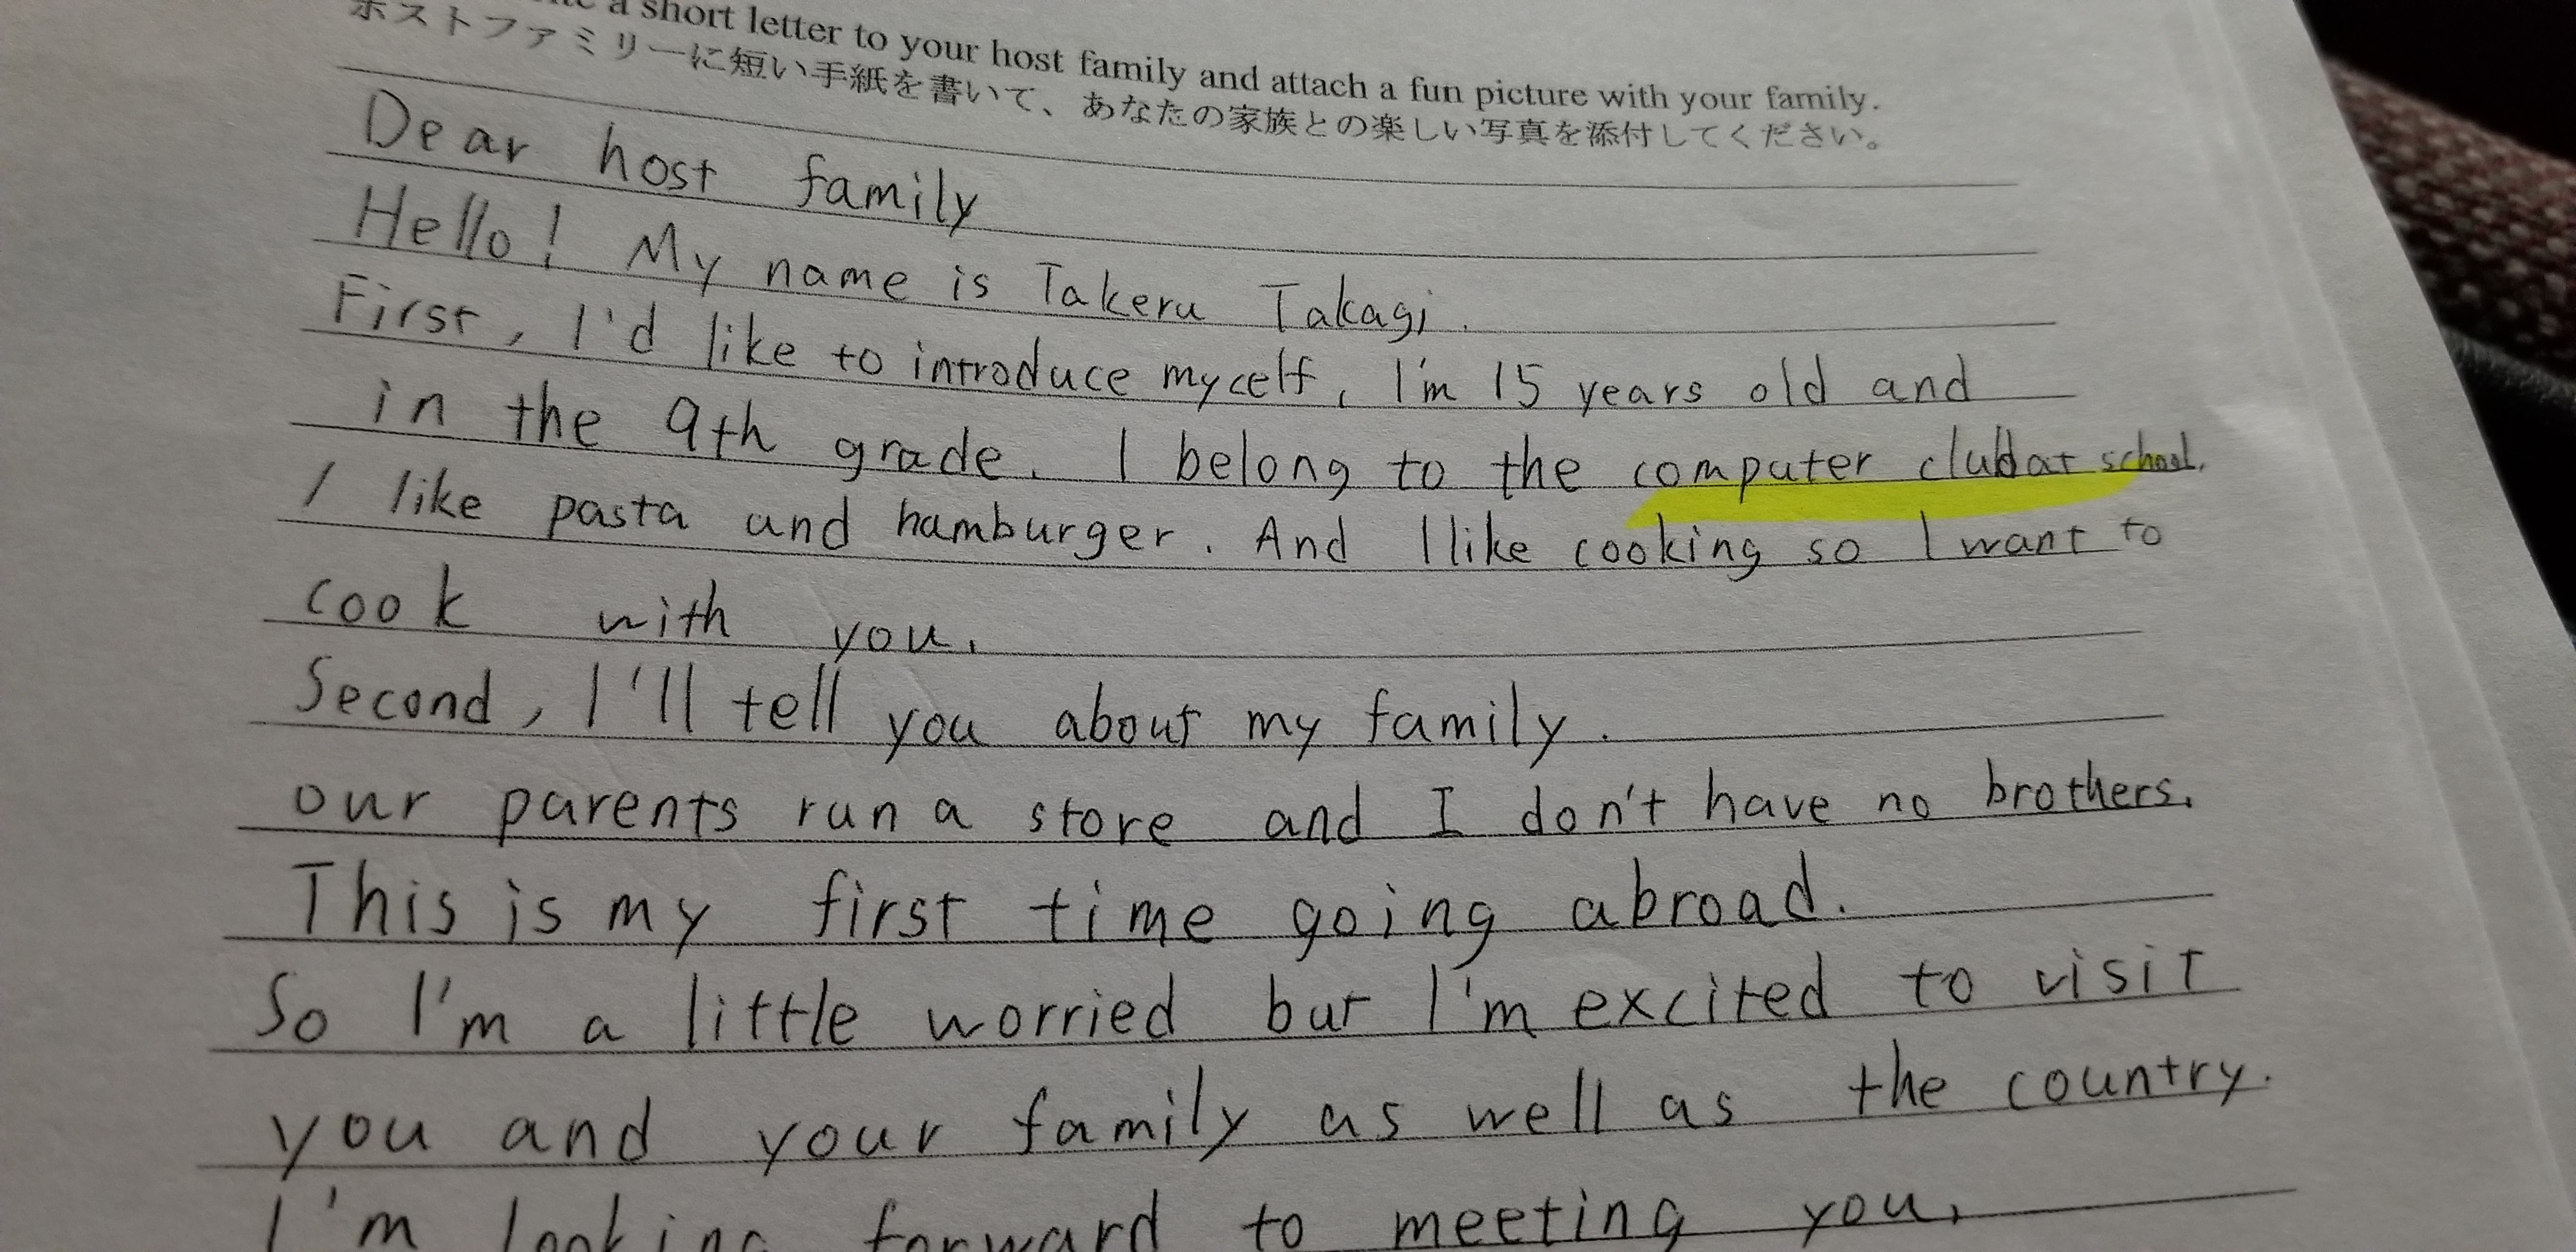 a short letter to your host family and attach a fun picture with your family.
ホストファミリーに短い手紙を書いて、あなたの家族との楽しい写真を添付してください。
Dear host family
Hello! My name is Takeru Takagi.
First, I'd like to introduce mycelf. I'm 15 years old and
in the 9th grade. I belong to the computer club at school.
I like pasta and hamburger. And I like cooking so I want to
cook with you.
Second, I'll tell you about my family.
our parents run a store and I don't have no brothers.
This is my first time going abroad.
So I'm a little worried but I'm excited to visit
you and your family as well as the country.
I'm looking forward to meeting you.